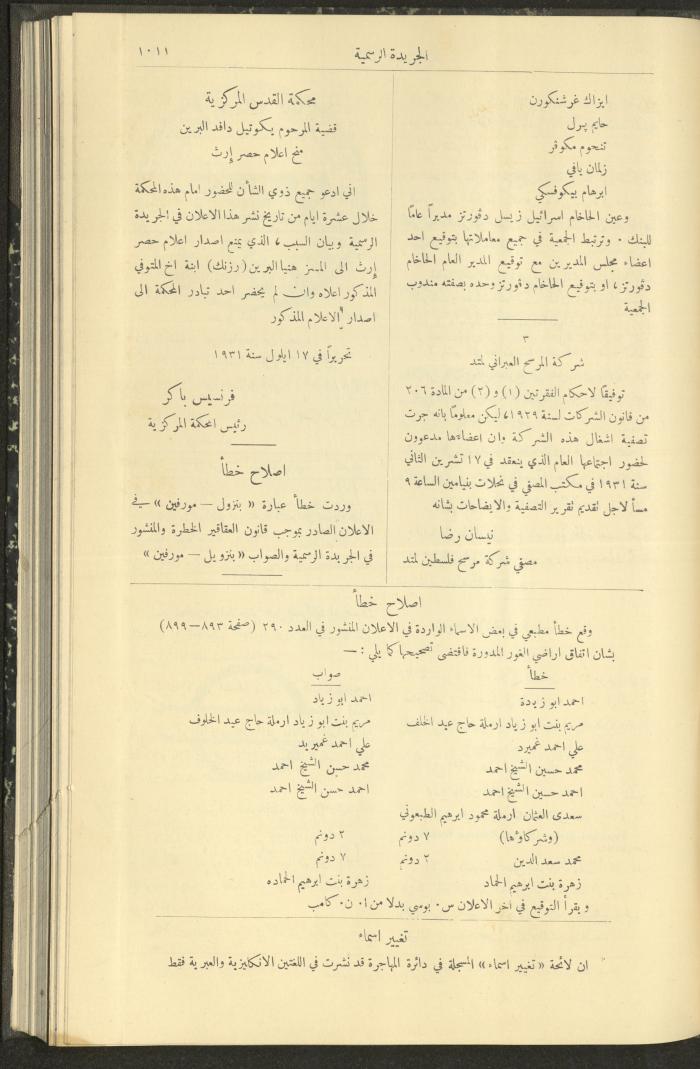 الجريدة الرسمية
١٠١١
ايزاك غرشنكورن
حايم پرل
تنحوم مكوفر
زلمان يافي
ابرهام بيكوفسكي
وعين الحاخام اسرائيل زيسل دڤورتز مديراً عاماً
للبنك ٠ وترتبط الجمعية في جميع معاملاتها بتوقيع احد
اعضاء مجلس المديرين مع توقيع المدير العام الحاخام
دڤورتز ، او بتوقيع الحاخام دڤورتز وحده بصفته مندوب
الجمعية
٣
شركة المرسح العبراني لمتد
توفيقاً لاحكام الفقرتين (١) و (٢) من المادة ٢٠٦
من قانون الشركات لسنة ١٩٢٩، ليكن معلوماً بانه جرت
تصفية اشغال هذه الشركة وان اعضاءها مدعوون
لحضور اجتماعها العام الذي ينعقد في ١٧ تشرين الثاني
سنة ١٩٣١ في مكتب المصفي في نحلات بنيامين الساعة ٩
مساً لاجل تقديم تقرير التصفية والايضاحات بشانه
نيسان رضا
مصفي شركة مرسح فلسطين لمتد
محكمة القدس المركزية
قضية المرحوم يكوتيل دافد البرين
منح اعلام حصر إرث
اني ادعو جميع ذوي الشأن للحضور امام هذه المحكمة
خلال عشرة ايام من تاريخ نشر هذا الاعلان في الجريدة
الرسمية وبيان السبب ، الذي يمنع اصدار اعلام حصر
إرث الى المسز هنيا البرين (رزنك) ابنة اخ المتوفي
المذكور اعلاه وان لم يحضر احد تبادر المحكمة الى
اصدار الاعلام المذكور
تحريراً في ١٧ ايلول سنة ١٩٣١
فرنسيس باكر
رئيس المحكمة المركزية
اصلاح خطأ
وردت خطأ عبارة « بنزول — مورفين » في
الاعلان الصادر بموجب قانون العقاقير الخطرة والمنشور
في الجريدة الرسمية والصواب « بنزويل — مورفين »
اصلاح خطأ
وقع خطأ مطبعي في بعض الاسماء الواردة في الاعلان المنشور في العدد ٢٩٠ (صفحة ٨٩٣—٨٩٩)
بشان اتفاق اراضي الغور المدورة فاقتضى تصحيحها كما يلي : —
خطأ صواب
احمد ابو زيدة احمد ابو زياد
مريم بنت ابو زياد ارملة حاج عيد الخلف مريم بنت ابو زياد ارملة حاج عيد الخلوف
علي احمد غميرد علي احمد غميريد
محمد حسين الشيخ احمد محمد حسن الشيخ احمد
احمد حسين الشيخ احمد احمد حسن الشيخ احمد
سعدى العثمان ارملة محمود ابرهيم الطبعوني
(وشركاؤها) ٧ دونم ٢ دونم
محمد سعد الدين ٢ دونم ٧ دونم
زهرة بنت ابرهيم الحماد زهرة بنت ابرهيم الحماده
ويقرأ التوقيع في اخر الاعلان س٠ بوسي بدلا من ا٠ ن٠ كامب
تغيير اسماء
ان لائحة « تغيير اسماء » المسجلة في دائرة المهاجرة قد نشرت في اللغتين الانكليزية والعبرية فقط